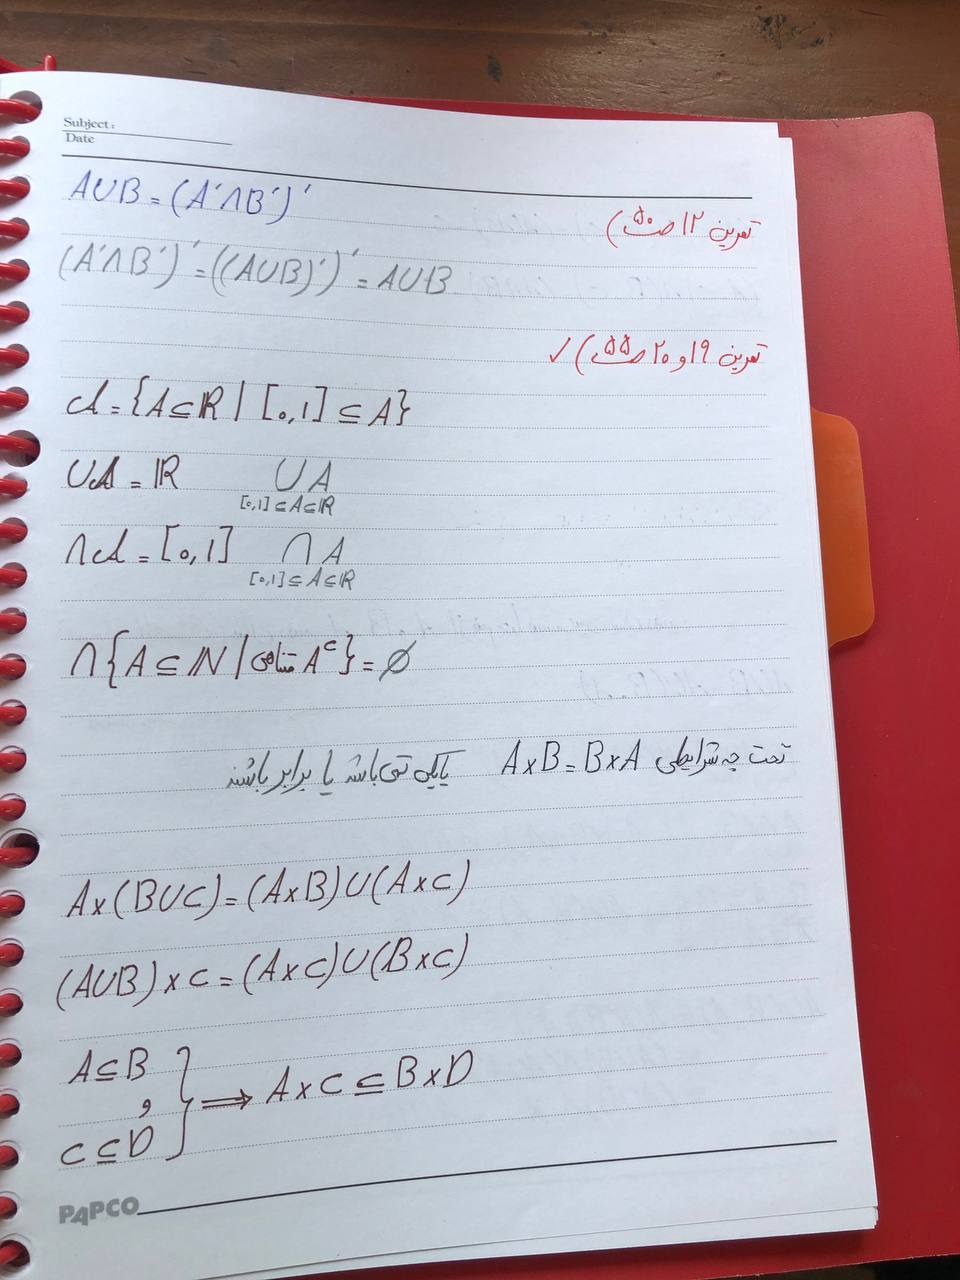 Subject:
Date
A∪B = (A′∩B′)′
تمرین ۱۲ ص ۵۰)
(A′∩B′)′ = ((A∪B)′)′ = A∪B
تمرین ۱۹ و ۲۰ ص ۵۵) ✓
𝒜 = {A ⊆ ℝ | [0,1] ⊆ A}
∪𝒜 = ℝ ∪A
[0,1] ⊆ A ⊆ ℝ
∩𝒜 = [0,1] ∩A
[0,1] ⊆ A ⊆ ℝ
∩{A ⊆ ℕ | متناهی Aᶜ} = ∅
تحت چه شرایطی A×B = B×A یکی تهی باشد یا برابر باشند
A×(B∪C) = (A×B)∪(A×C)
(A∪B)×C = (A×C)∪(B×C)
A⊆B
و } ⟹ A×C ⊆ B×D
C⊆D
PAPCO